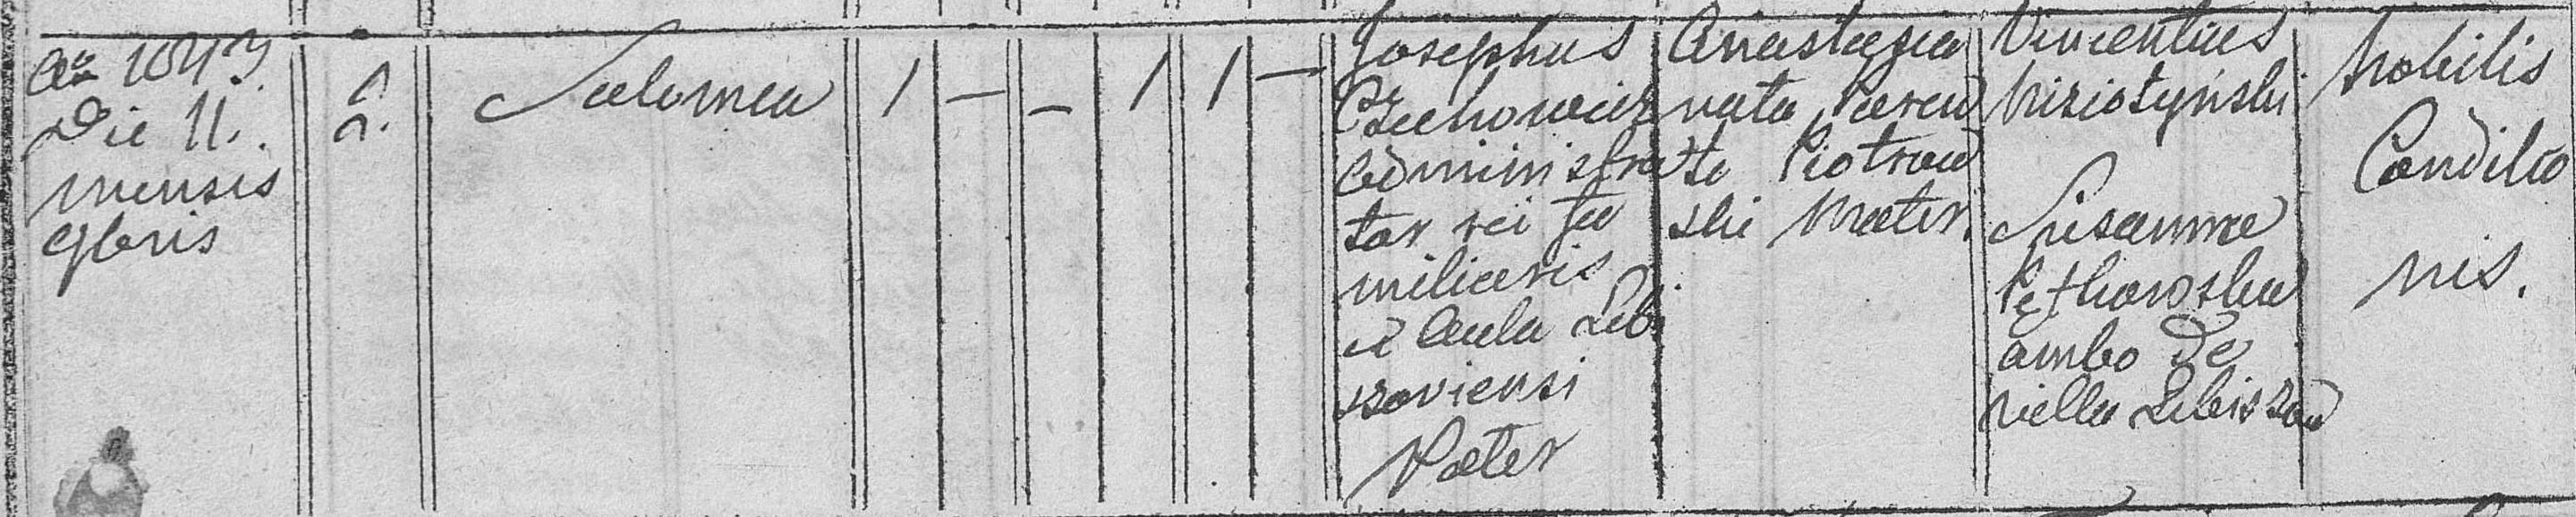 Ao 1843
Die 11.
mensis
9bris
2.
Salomea
1 — — 1 1 —
Josephus
Czechowicz
administra
tor rei fa
miliaris
ex Aula Libi
szoviensi
Pater
Anastazia
nata Paren
te Piotrow
ski Mater.
Vincentius
Niziotyński
Susanna
ambo de
villa Libiszów
Nobilis
Conditio
nis.